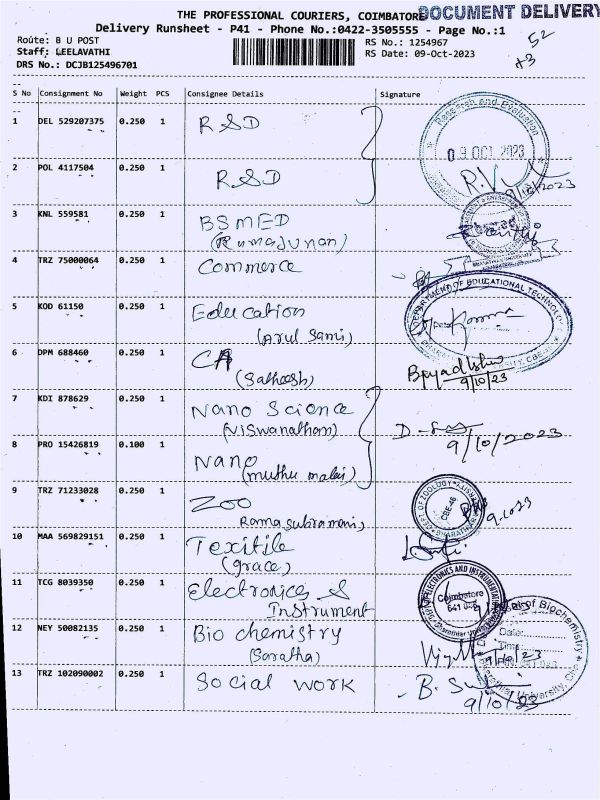 THE PROFESSIONAL COURIERS, COIMBATORE
DOCUMENT DELIVERY
Delivery Runsheet - P41 - Phone No.:0422-3505555 - Page No.:1
Route: B U POST
RS No.: 1254967
52
Staff: LEELAVATHI
RS Date: 09-Oct-2023
+3
DRS No.: DCJB125496701
S No Consignment No Weight PCS Consignee Details Signature
1 DEL 529207375 0.250 1 RSD
Research and Evaluation
09 OCT 2023
2 POL 4117504 0.250 1 RSD
9/10/2023
3 KNL 559581 0.250 1 BSMED
(Ramajunan)
4 TRZ 75000064 0.250 1 Commerce
5 KOD 61150 0.250 1 Education
(Arul Sami)
DEPARTMENT OF EDUCATIONAL TECHNOLOGY
6 DPM 688460 0.250 1 CA
(Satheesh)
9/10/23
7 KDI 878629 0.250 1 Nano Science
(Viswanatham)
9/10/2023
8 PRO 15426819 0.100 1 Nano
(muthu malai)
9 TRZ 71233028 0.250 1 ZOO
Rama Subramani
DEPT OF ZOOLOGY
CBE-46
10 MAA 569829151 0.250 1 Texitile
(grace)
11 TCG 8039350 0.250 1 Electronics &
Instrument
ELECTRONICS AND INSTRUMENTATION
Coimbatore
641 046
12 NEY 50082135 0.250 1 Bio chemistry
(Saratha)
of Biochemistry
Date:
Time:
9/10/23
13 TRZ 102090002 0.250 1 Social work
Bharathiar University, Cbe
9/10/23